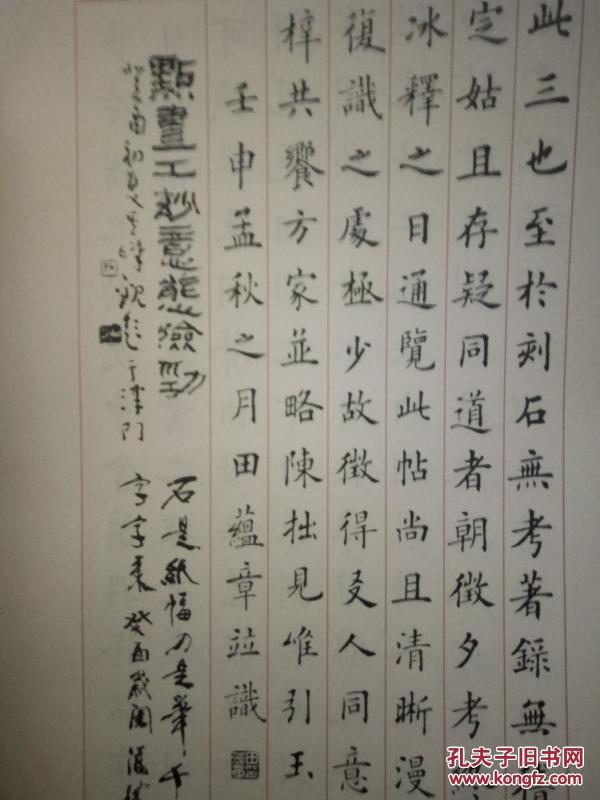 此三也至於刻石無考著錄無
定姑且存疑同道者朝徵夕考
冰釋之日通覽此帖尚且清晰漫
復識之處極少故徵得友人同意
梓共饗方家並略陳拙見唯引玉
壬申孟秋之月田蘊章並識
點畫工妙意態險勁
癸酉初夏 觀 于津門
石是紙幅刀是筆千
字字 癸酉歲
孔夫子旧书网
www.kongfz.com